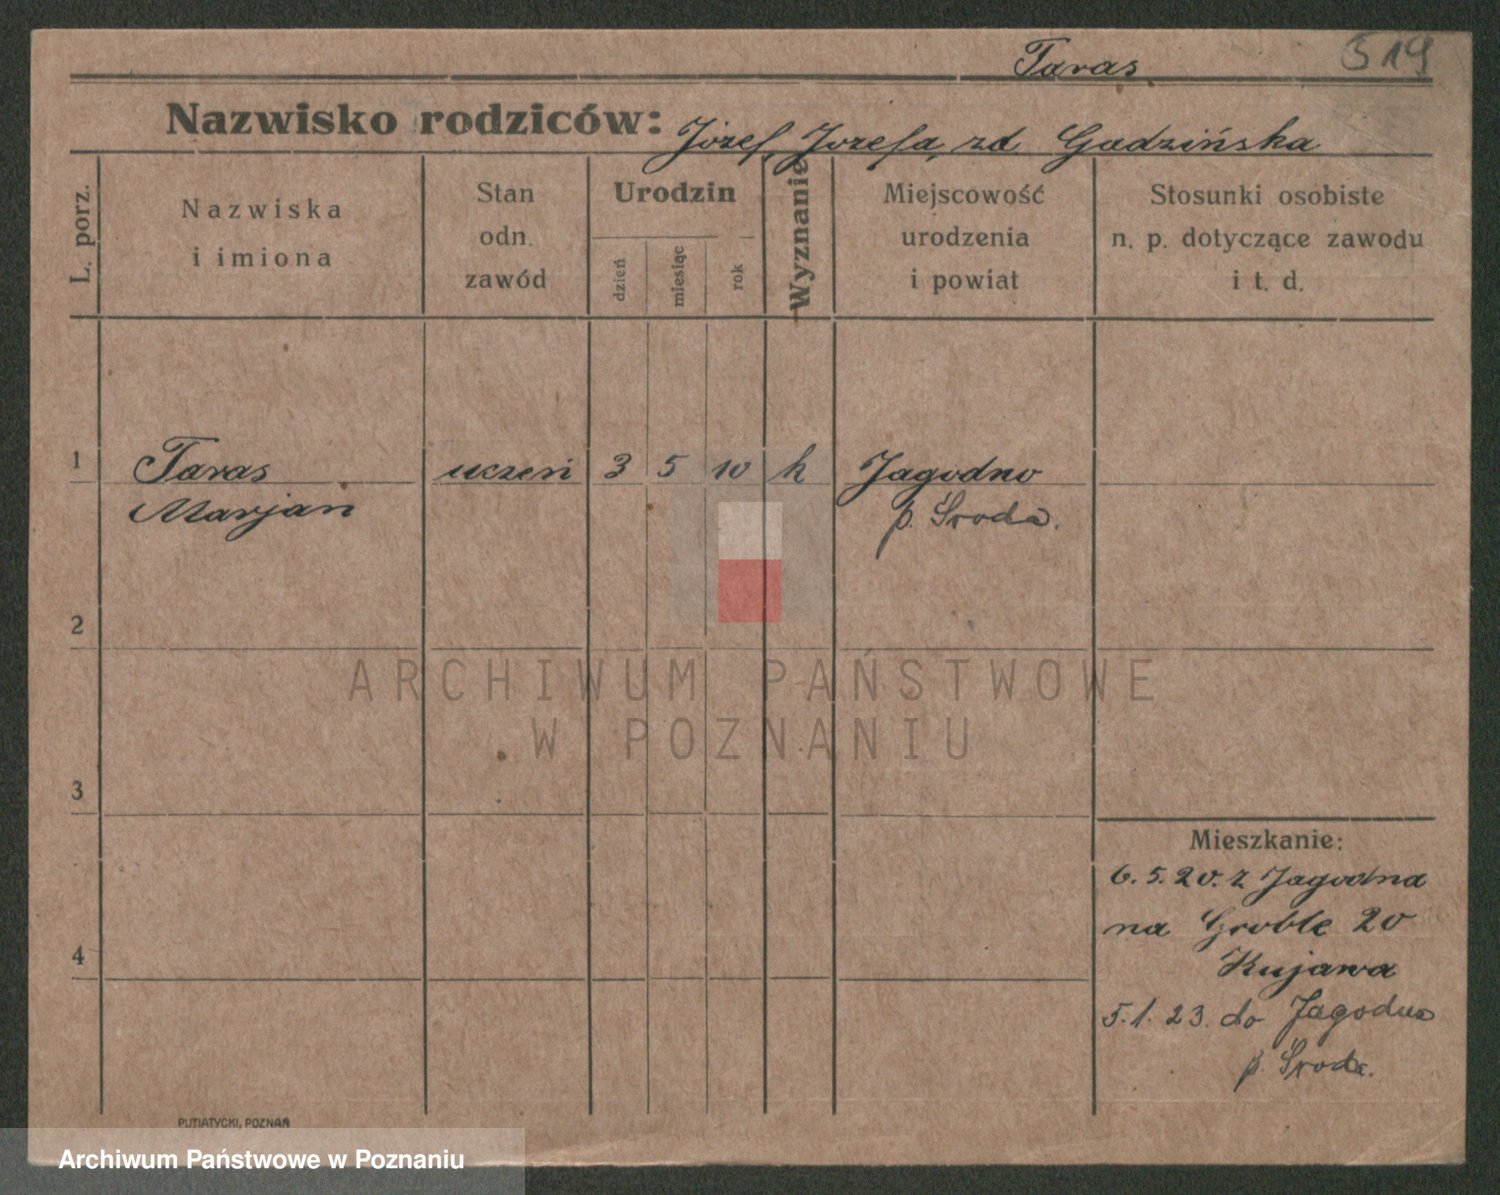 Taras 519
Nazwisko rodziców: Józef, Jozefa, zd. Gadzińska
L. porz.
Nazwiska
i imiona
Stan
odn.
zawód
Urodzin
dzień
miesiąc
rok
Wyznanie
Miejscowość
urodzenia
i powiat
Stosunki osobiste
n. p. dotyczące zawodu
i t. d.
1 Taras uczeń 3 5 10 k Jagodno
Marjan p. Środa.
2
ARCHIWUM PAŃSTWOWE
W POZNANIU
3
Mieszkanie:
6. 5. 20. z Jagodna
na Groble 20
4
Kujawa
5. 1. 23. do Jagodna
p. Środa.
PUTIATYCKI, POZNAŃ
Archiwum Państwowe w Poznaniu